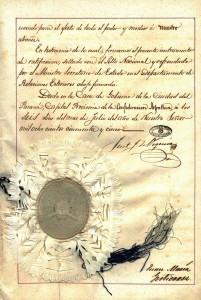 usando para el efecto de todo el poder y medios á nuestro
alcance.
En testimonio de lo cual, firmamos el presente instrumento
de ratificacion, sellado con el Sello Nacional, y refrendado
por el Ministro Secretario de Estado en el Departamento de
Relaciones Exteriores abajo firmado.
Dado en la Casa de Gobierno de la Ciudad del
Paraná, Capital Provisoria de la Confederacion Argentina á los
dias del mes de Julio del año de Nuestro Señor
mil ocho cientos cincuenta y cinco.
Juan María
Gutierrez